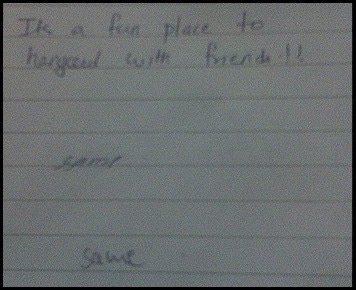 Its a fun place to
hangout with friends!!
same
same